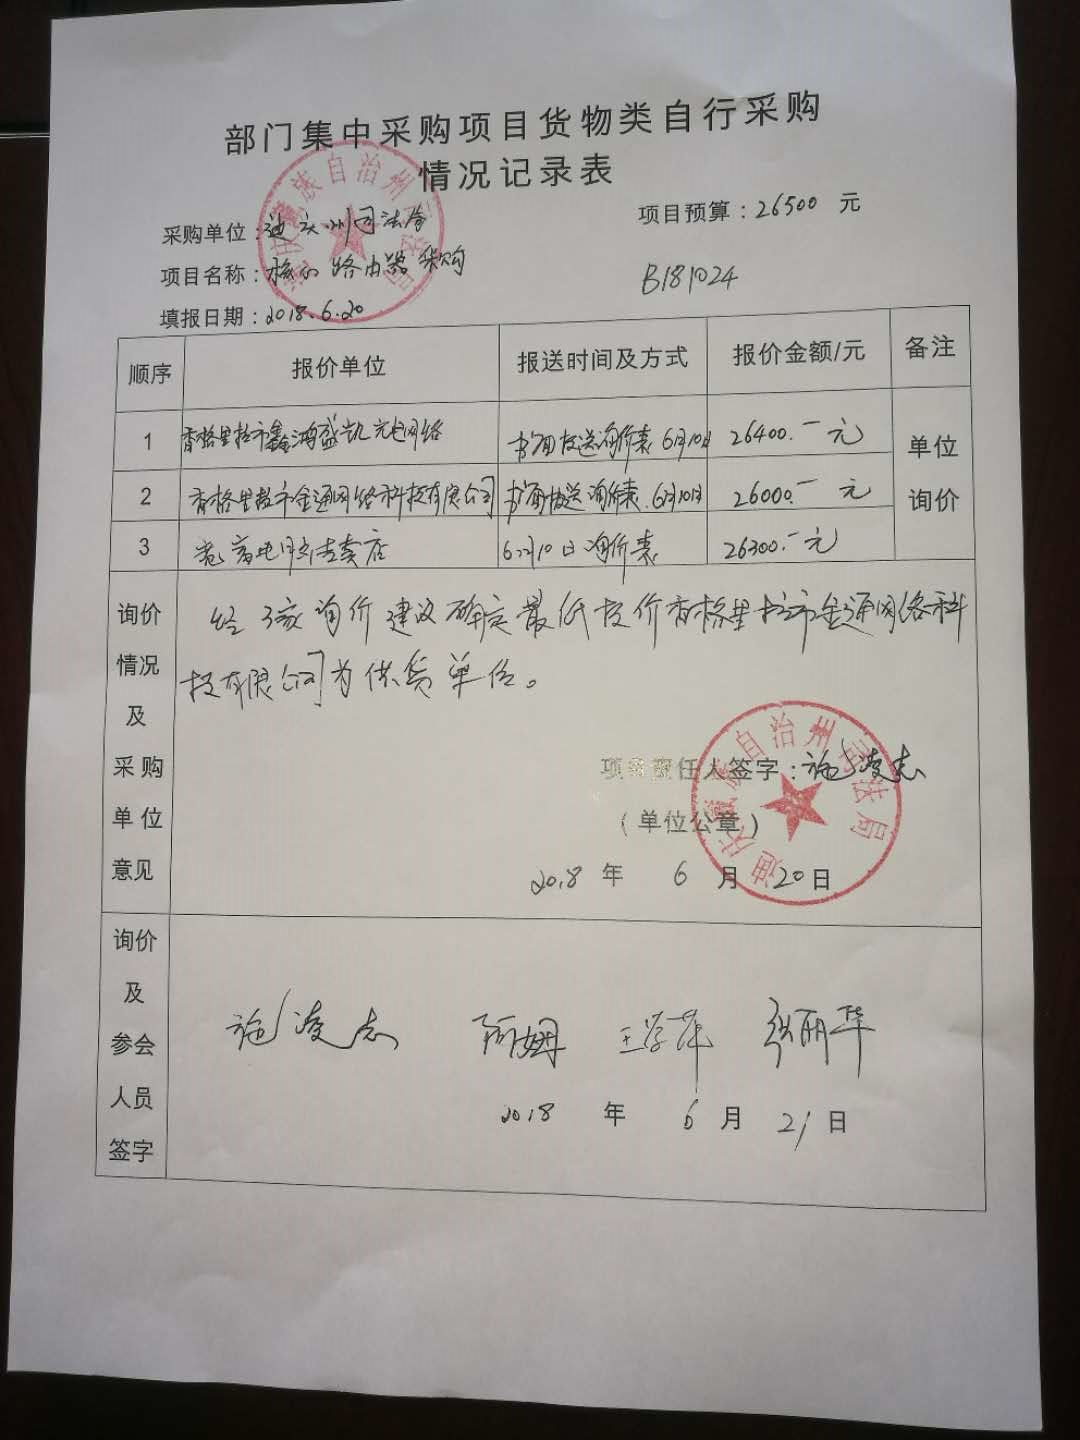 部门集中采购项目货物类自行采购
情况记录表
采购单位：迪庆州司法局
项目预算：26500 元
项目名称：核心路由器采购
B181024
填报日期：2018.6.20
顺序 报价单位 报送时间及方式 报价金额/元 备注
1 香格里拉市鑫鸿盛凯元电网络 书面报送询价表 6月10日 26400.- 元
2 香格里拉市金通网络科技有限公司 书面报送询价表 6月10日 26000.- 元
3 电脑专卖店 6月10日询价表 26300.- 元
单位
询价
询价
情况
及
采购
单位
意见
经3家询价建议确定最低投价香格里拉市金通网络科
技有限公司为供货单位。
项目责任人签字：施凌志
（单位公章）
2018 年 6 月 20 日
迪庆藏族自治州司法局
询价
及
参会
人员
签字
施凌志 阿姆 王学萍 张丽华
2018 年 6 月 21 日
迪庆藏族自治州司法局